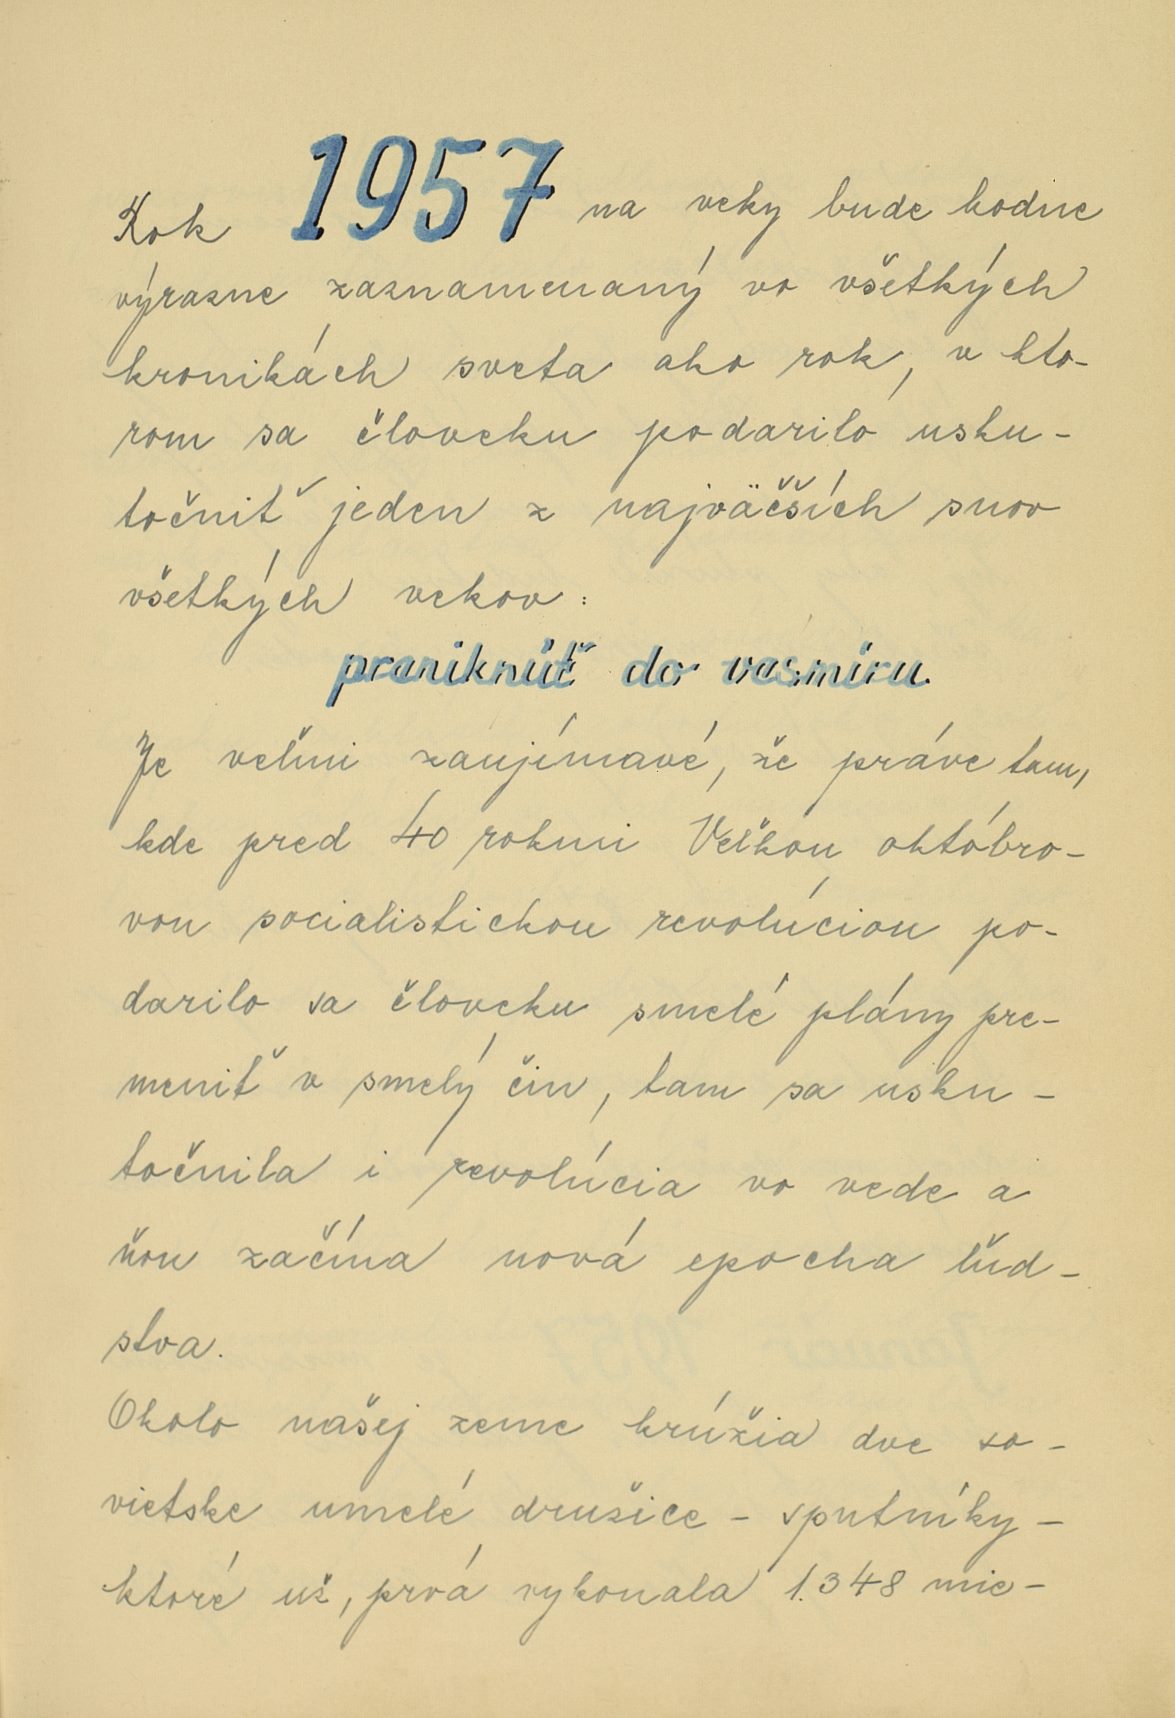 Rok 1957 na veky bude hodne
výrazne zaznamenaný vo všetkých
kronikách sveta ako rok, v kto-
rom sa človeku podarilo usku-
točniť jeden z najväčších snov
všetkých vekov:
preniknúť do vesmíru.
Je veľmi zaujímavé, že práve tam,
kde pred 40 rokmi Veľkou októbro-
vou socialistickou revolúciou po-
darilo sa človeku smelé plány pre-
meniť v smelý čin, tam sa usku-
točnila i revolúcia vo vede a
ňou začína nová epocha ľud-
stva.
Okolo našej zeme krúžia dve so-
vietske umelé družice - sputníky -
ktoré už, prvá vykonala 1.348 mie-